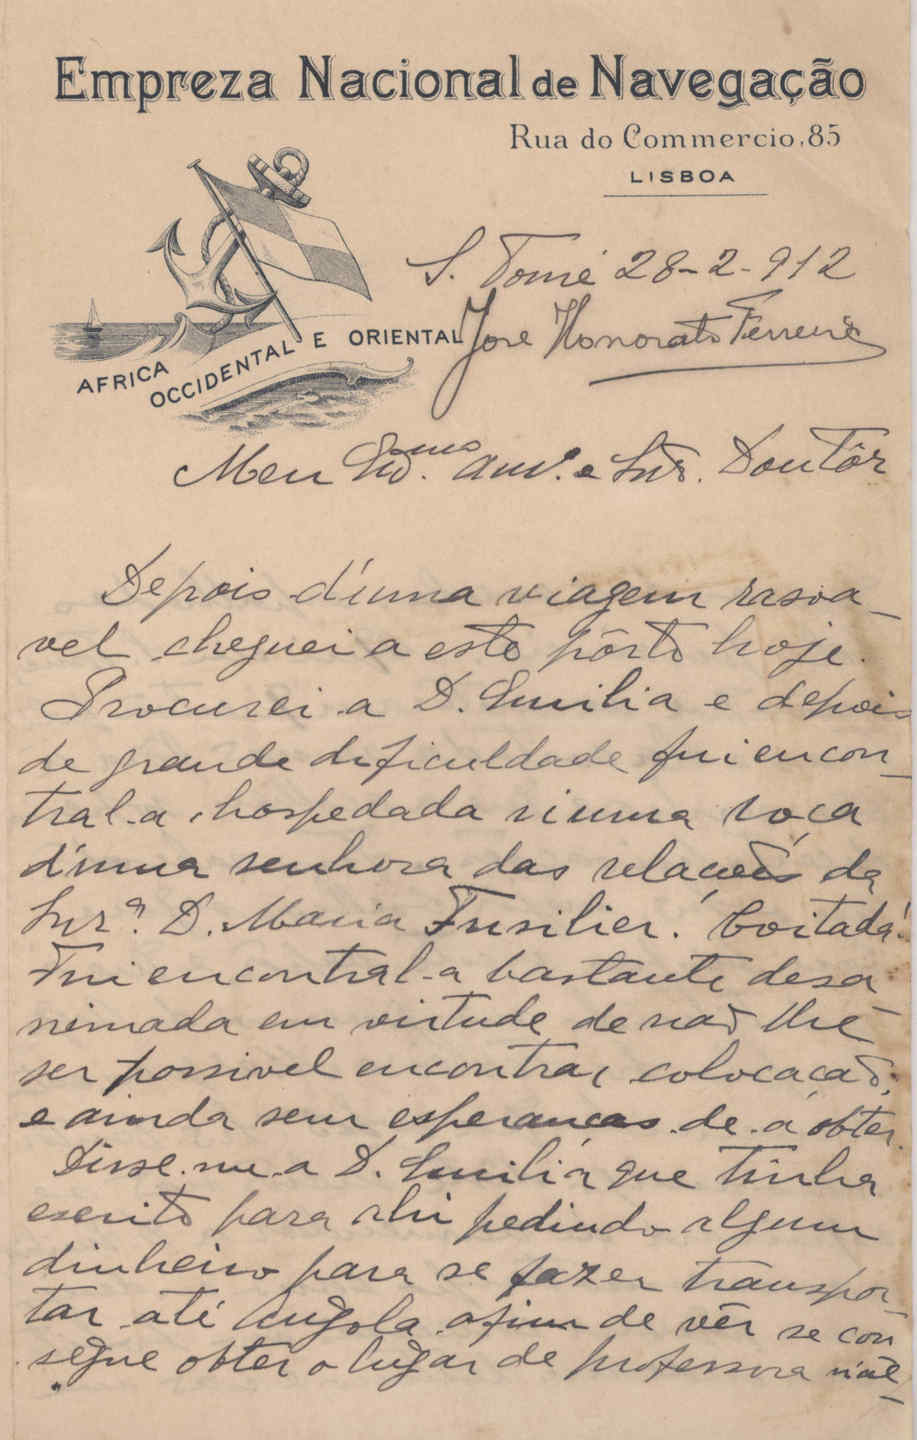 Empreza Nacional de Navegação
Rua do Commercio, 85
LISBOA
AFRICA OCCIDENTAL E ORIENTAL
S. Tomé 28-2-912
José Honorato Ferreira
Meu Exmo. am.º e Snr. Doutôr
Depois d'uma viagem rasoa-
vel cheguei a este pôrto hoje.
Procurei a D. Emilia e depois
de grande dificuldade fui encon-
tral-a hospedada n'uma roça
d'uma senhora das relações da
Snrª. D. Maria Fusilier! Coitada!
Fui encontral-a bastante desa-
nimada em virtude de não lhe
ser possivel encontrar colocação,
e ainda sem esperanças de a obter.
Disse-me a D. Emilia que tinha
escrito para ahi pedindo algum
dinheiro para se fazer transpor-
tar até Angola afim de vêr se con
segue obter o lugar de professora n'al-